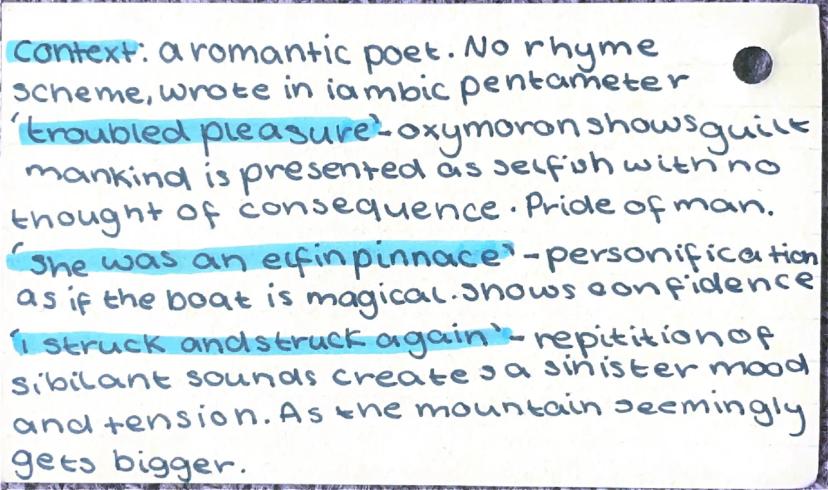 Context: a romantic poet. No rhyme
scheme, wrote in iambic pentameter
'troubled pleasure' - oxymoron shows guilt
mankind is presented as selfish with no
thought of consequence. Pride of man.
'She was an elfin pinnace' - personification
as if the boat is magical. Shows confidence
'I struck and struck again' - repitition of
sibilant sounds creates a sinister mood
and tension. As the mountain seemingly
gets bigger.